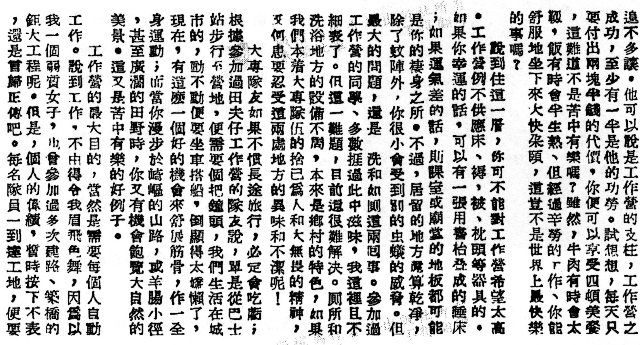 追不多讓。他可以說是工作營的支柱,工作營之
成功,至少有一半是他的功勞。試想想,每天只
要付出兩塊半錢的代價,你便可以享受四頓美餐
,這難道不是苦中有樂嗎?雖然,牛肉有時會太
靱,飯有時會半生熟、但經過辛勞的工作、你能
舒服地坐下來大快朵頤,這豈不是世界上最快樂
的事嗎?
說到住這一層,你可不能對工作營希望太高
。工作營例不供應床、褥、被、枕頭等器具的。
如果你幸運的話,可以有一張用書枱叠成的睡床
;如果運氣差的話,則課室或廟堂的地板都可能
是你的棲身之所。不過,居留的地方還算乾淨,
除了蚊陣外,你很少會受到別的虫蟻的威脅。但
最大的問題,還是 洗和如厠這兩回事。參加過
工作營的同學、多數捱過此中滋味,我這裡且不
細表了。但這一難題,目前還很難解决。厠所和
洗浴地方的設備不周,本來是鄉村的特色,如果
我們本着大專隊伍的捨己爲人和大無畏的精神,
又何患要忍受這兩處地方的異味和不潔呢!
大專隊友如果不慣長途旅行,必定會吃虧;
根據參加過田夫仔工作營的隊友說,單是從巴士
站步行至營地,便需要個把鐘頭,我們生活在城
市的,動不動便要坐車搭船,倒顯得太嬌懶了,
現在,有這麼一個好的機會來舒展筋骨,作一全
身運動;而當你漫步於崎嶇的山路,或羊腸小徑
,甚至廣濶的田野時,你又有機會飽覽大自然的
美景。這又是苦中有樂的好例子。
工作營的最大目的,當然是需要每個人自動
工作。說到工作,不由得令我眉飛色舞,因爲以
我一個弱質女子,也曾參加過多次建路、築橋的
鉅大工程呢。但是,個人的績,暫時按下不表
,還是言歸正傳吧。每名隊員一到達工地,便要